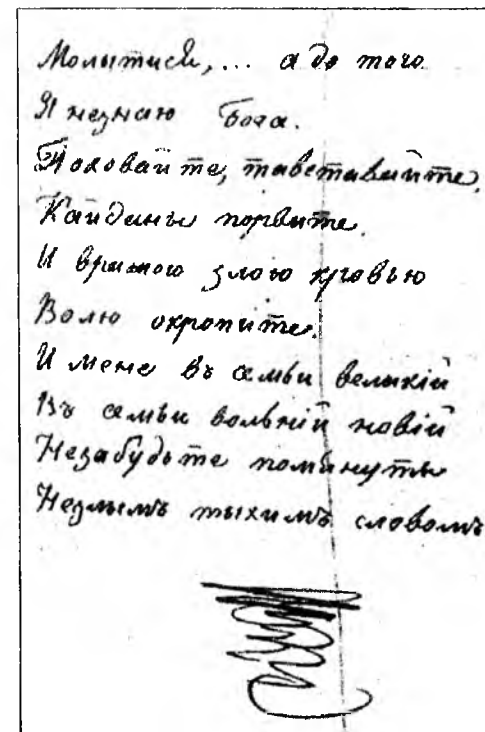 Молытися,... а до того
Я незнаю Бога.
Поховайте, тавставайте,
Кайданы порвите.
И вражою злою кровью
Волю окропите.
И мене въ семьи великій
Въ семьи вольній новій
Незабудьте помянуты
Незлымъ тыхимъ словомъ